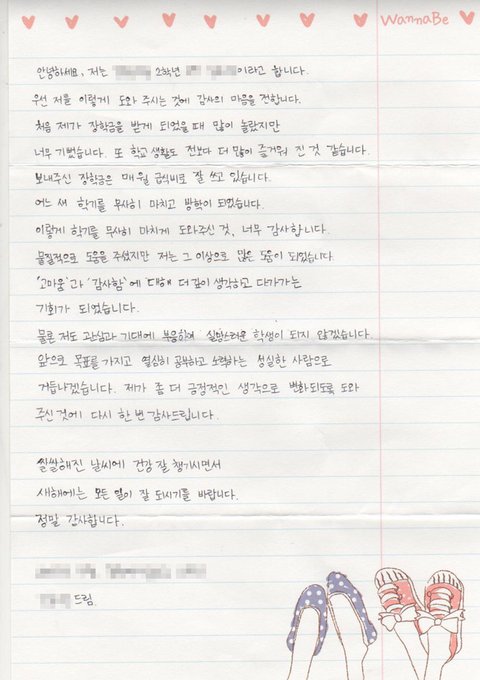 WannaBe
안녕하세요, 저는 2학년 이라고 합니다.
우선 저를 이렇게 도와 주시는 것에 감사의 마음을 전합니다.
처음 제가 장학금을 받게 되었을 때 많이 놀랐지만
너무 기뻤습니다. 또 학교 생활도 전보다 더 많이 즐거워 진 것 같습니다.
보내주신 장학금은 매월 급식비로 잘 쓰고 있습니다.
어느 새 학기를 무사히 마치고 방학이 되었습니다.
이렇게 학기를 무사히 마치게 도와주신 것, 너무 감사합니다.
물질적으로 도움을 주셨지만 저는 그 이상으로 많은 도움이 되었습니다.
'고마움'과 '감사함'에 대해 더 깊이 생각하고 다가가는
기회가 되었습니다.
물론 저도 관심과 기대에 부응하여 실망스러운 학생이 되지 않겠습니다.
앞으로 목표를 가지고 열심히 공부하고 노력하는 성실한 사람으로
거듭나겠습니다. 제가 좀 더 긍정적인 생각으로 변화되도록 도와
주신 것에 다시 한 번 감사드립니다.
쌀쌀해진 날씨에 건강 잘 챙기시면서
새해에는 모든 일이 잘 되시기를 바랍니다.
정말 감사합니다.
드림.